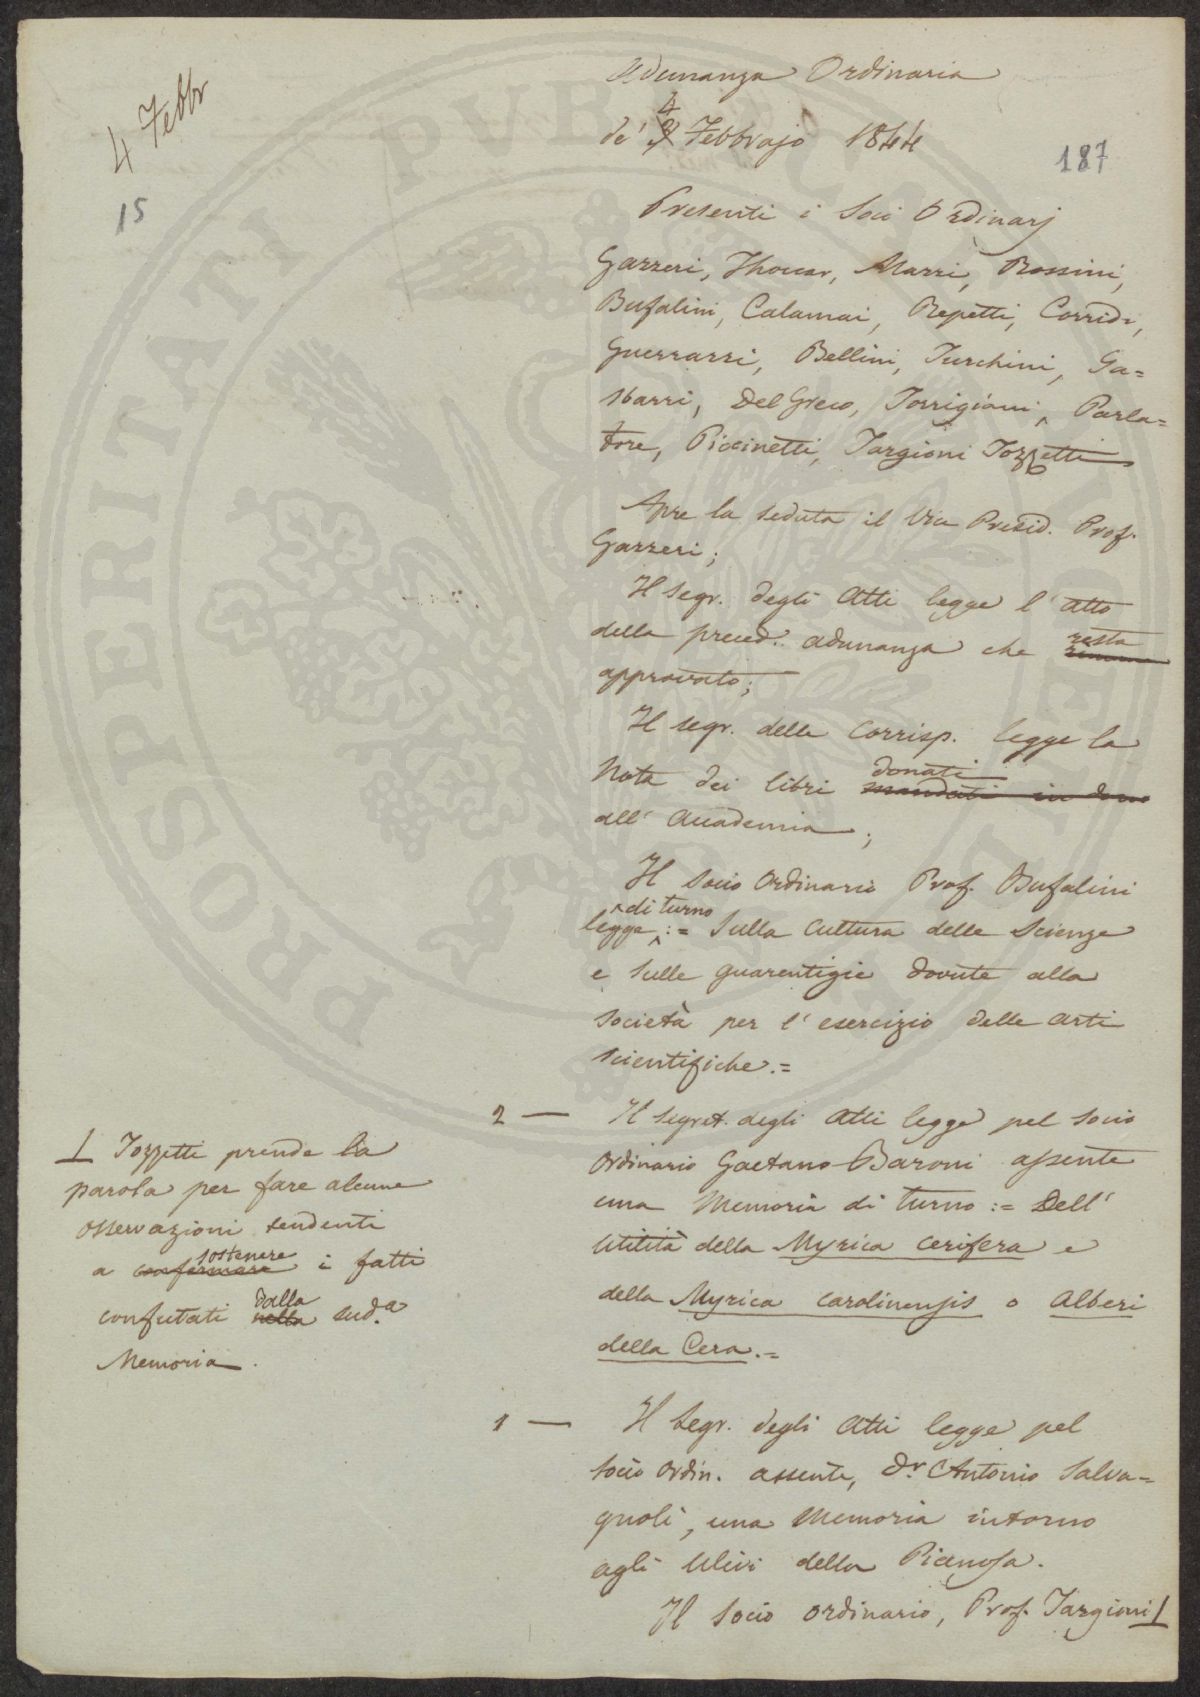 4 Febbr
15
Adunanza Ordinaria
4
de' Febbrajo 1844
187
Presenti i Soci Ordinarj
Gazzeri, Thouar, Marzi, Rossini,
Bufalini, Calamai, Repetti, Corridi,
Guerrazzi, Bellini, Turchini, Ga=
sbarri, Del Greco, Torrigiani, Parla=
tore, Piccinetti, Targioni Tozzetti
Apre la seduta il Vice Presid. Prof.
Gazzeri;
Il Segr. degli Atti legge l'atto
della preced. adunanza che resta
approvato;
Il segr. delle Corrisp. legge la
Nota dei libri donati
mandati in dono
all' Accademia;
Il Socio Ordinario Prof. Bufalini
di turno
legge := Sulla cultura delle Scienze
e sulle guarentigie dovute alla
società per l'esercizio delle arti
scientifiche.=
2 — Il Segret. degli Atti legge pel socio
Ordinario Gaetano Baroni assente
una Memoria di turno := Dell'
Utilità della Myrica cerifera e
della Myrica carolinensis o Alberi
della Cera.=
1 — Il Segr. degli Atti legge pel
socio ordin. assente, Dr. Antonio Salva=
gnoli, una Memoria intorno
agli Ulivi della Pianosa.
Il Socio ordinario, Prof. Targioni
Tozzetti prende la
parola per fare alcune
osservazioni tendenti
sostenere
a confermare i fatti
dalla
confutati nella sud.a
Memoria.
PROSPERITATI PVBLICAE